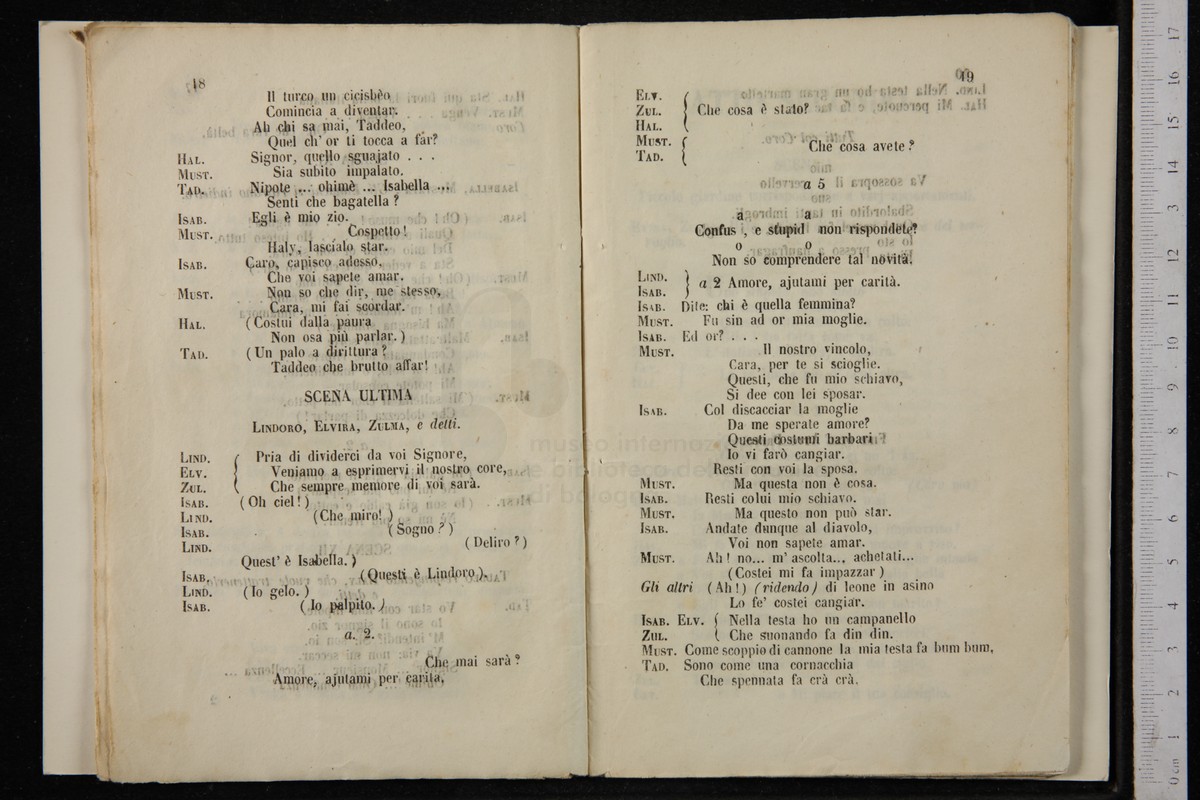 18
Il turco un cicisbèo
Comincia a diventar.
Ah chi sa mai, Taddeo,
Quel ch' or ti tocca a far?
HAL. Signor, quello sguajato . . .
MUST. Sia subito impalato.
TAD. Nipote ... ohimè ... Isabella ...
Senti che bagatella?
ISAB. Egli è mio zio.
MUST. Cospetto!
Haly, lascialo star.
ISAB. Caro, capisco adesso,
Che voi sapete amar.
MUST. Non so che dir, me stesso,
Cara, mi fai scordar.
HAL. (Costui dalla paura
Non osa più parlar.)
TAD. (Un palo a dirittura?
Taddeo che brutto affar!
SCENA ULTIMA
LINDORO, ELVIRA, ZULMA, e detti.
LIND. Pria di dividerci da voi Signore,
ELV. Veniamo a esprimervi il nostro core,
ZUL. Che sempre memore di voi sarà.
ISAB. (Oh ciel!)
LIND. (Che miro!)
ISAB. (Sogno?)
LIND. (Deliro?)
Quest' è Isabella.)
ISAB. (Questi è Lindoro.)
LIND. (Io gelo.)
ISAB. (Io palpito.)
a. 2.
Che mai sarà?
Amore, ajutami per carità,
19
ELV.
ZUL. Che cosa è stato?
HAL.
MUST. Che cosa avete?
TAD.
a 5
a a
Confus , e stupid non rispondete?
o o
Non so comprendere tal novità!
LIND.
ISAB. a 2 Amore, ajutami per carità.
ISAB. Dite: chi è quella femmina?
MUST. Fu sin ad or mia moglie.
ISAB. Ed or? . . .
MUST. Il nostro vincolo,
Cara, per te si scioglie.
Questi, che fu mio schiavo,
Si dee con lei sposar.
ISAB. Col discacciar la moglie
Da me sperate amore?
Questi costumi barbari
Io vi farò cangiar.
Resti con voi la sposa.
MUST. Ma questa non è cosa.
ISAB. Resti colui mio schiavo.
MUST. Ma questo non può star.
ISAB. Andate dunque al diavolo,
Voi non sapete amar.
MUST. Ah! no... m' ascolta... achetati...
(Costei mi fa impazzar)
Gli altri (Ah!) (ridendo) di leone in asino
Lo fe' costei cangiar.
ISAB. ELV. Nella testa ho un campanello
ZUL. Che suonando fa din din.
MUST. Come scoppio di cannone la mia testa fa bum bum.
TAD. Sono come una cornacchia
Che spennata fa crà crà.